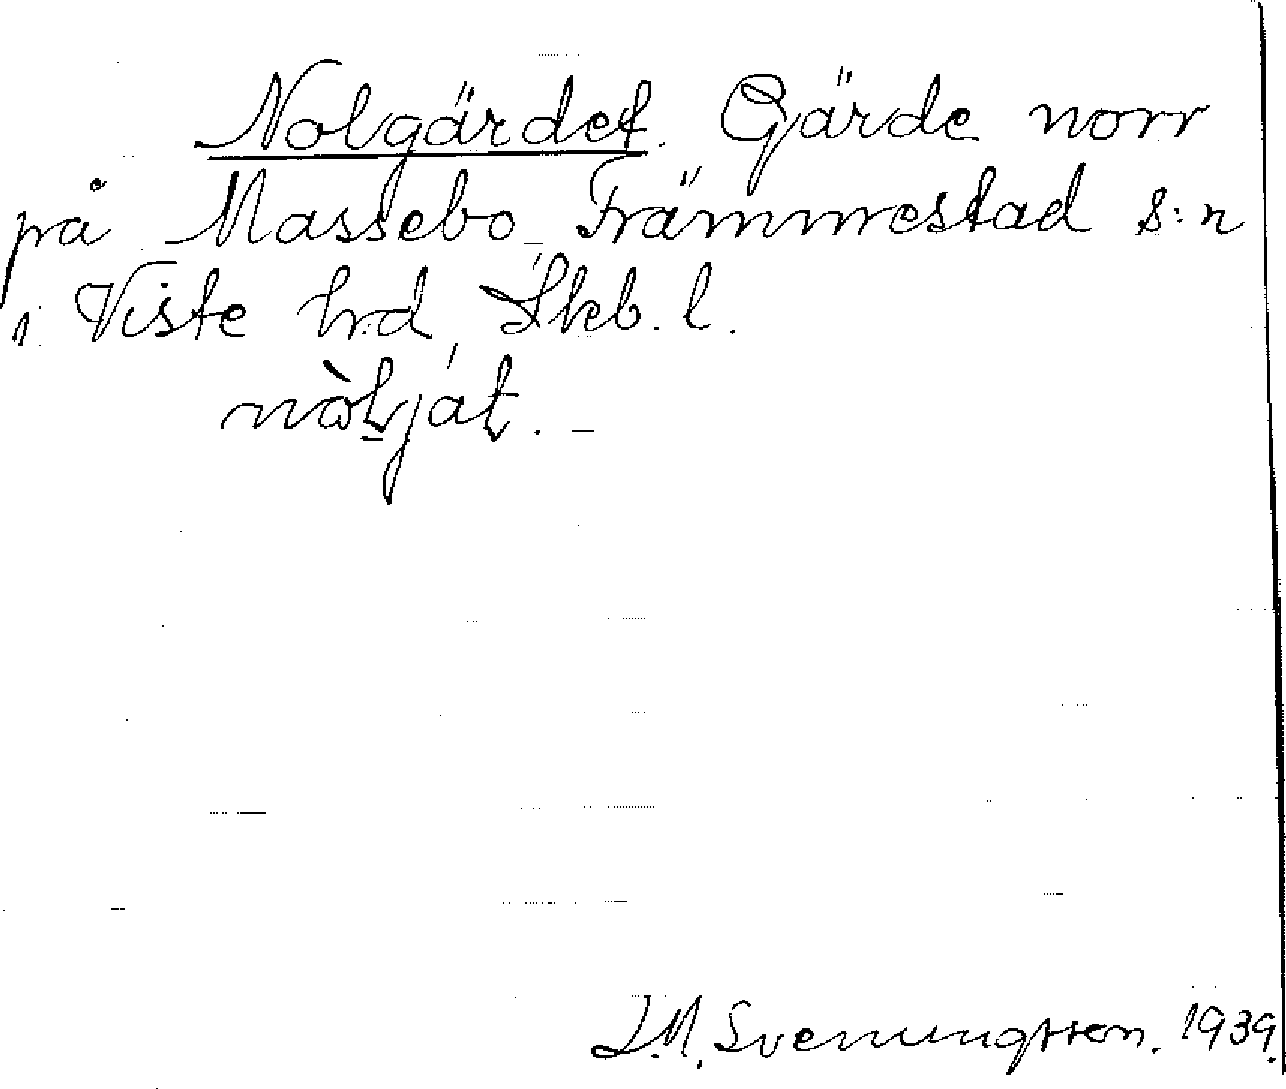 Nolgärdet. Gärde norr
på Massebo, Främmestad s:n
i Viste hd, Skb. l.
J.M. Svenungsson. 1939.